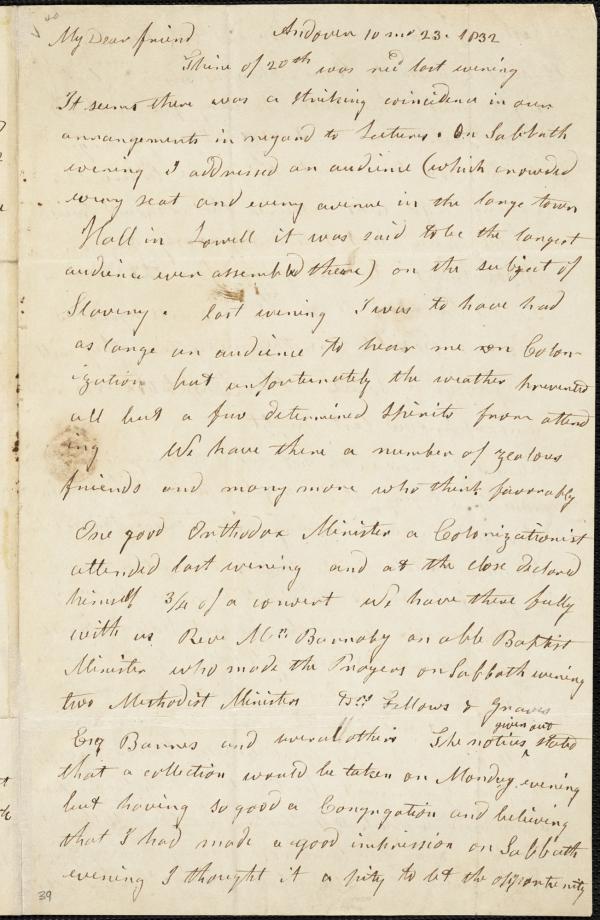 My Dear friend Andover 10 mo 23. 1832
Thine of 20th was recd last evening
It seems there was a striking coincidence in our
arrangements in regard to Lectures. On Sabbath
evening I addressed an audience (which crowded
every seat and every avenue in the large town
Hall in Lowell it was said to be the largest
audience ever assembled there) on the subject of
Slavery. last evening I was to have had
as large an audience to hear me on Colon-
ization but unfortunately the weather prevented
all but a few determined spirits from attend
ing We have there a number of zealous
friends and many more who think favorably
One good Orthodox Minister a Colonizationist
attended last evening and at the close declared
himself 3/4 of a convert We have there fully
with us Revd Mr Barnaby an able Baptist
Minister who made the Prayers on Sabbath evening
two Methodist Ministers Fellows & Graves
given out
Esq Barnes and several others The notices stated
that a collection would be taken on Monday evening
but having so good a Congregation and believing
that I had made a good impression on Sabbath
evening I thought it a pity to let the opportunity
39